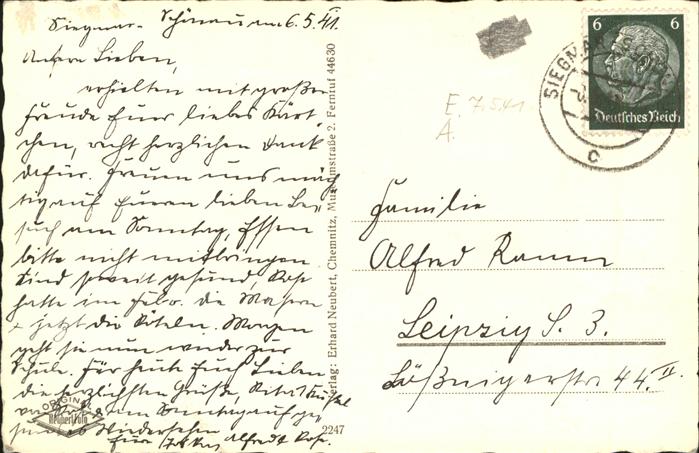 Siegmar-Schönau am 6.5.41.
Unsere Lieben,
erhielten mit großer
Freude Euer liebes Kärt-
chen, recht herzlichen Dank
dafür. Freuen uns mäch-
tig auf Euren lieben Be-
such am Sonntag, Essen
bitte nicht mitbringen
Sind soweit gesund,
hatte im Febr. die Masern
+ jetzt die Röteln. Morgen
geht sie nun wieder zur
Schule. Für heute Euch Lieben
die herzlichsten Grüße,
am Sonntag auf ge-
sundes Wiedersehen
Eure Alfred
ORIGINAL
Neubert Foto
Verlag: Erhard Neubert, Chemnitz, Museumstraße 2. Fernruf 44630
2247
E. 7.5.41
A.
6 6
Deutsches Reich
SIEGMAR-SCHÖNAU
c
Familie
Alfred Ramm
Leipzig S. 3.
Lößnigerstr. 44. II.